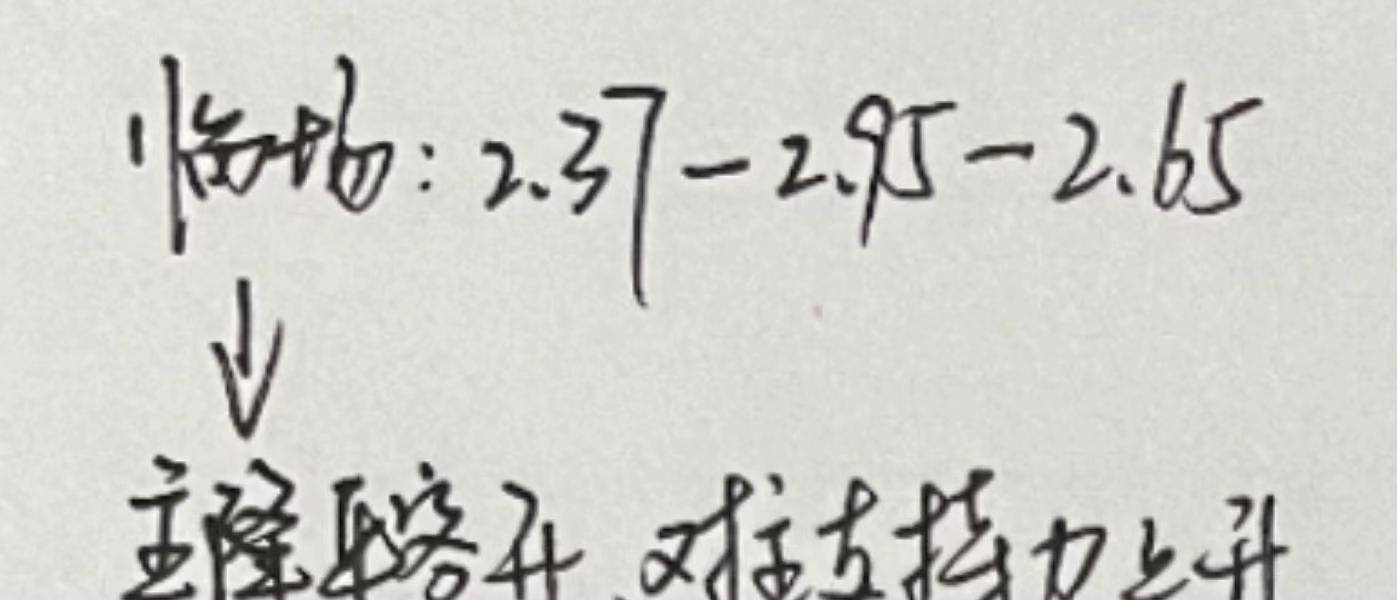 临场:2.37-2.95-2.65
↓
主降平客升,对主支持力上升